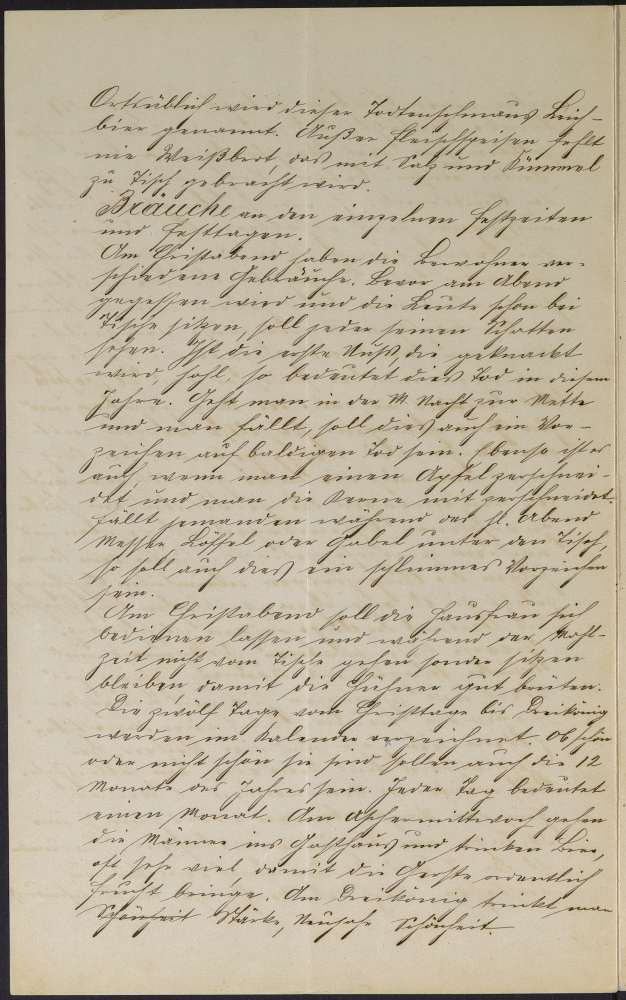 Ortsüblich wird dieser Todtenschmaus Leich-
bier genannt. Außer Fleischspeisen fehlt
nie Weißbrot, das mit Salz und Kümmel
zu Tisch gebracht wird.
Bräuche an den einzelnen Festzeiten
und Festtagen.
Am Christabend haben die Bewohner ver-
schiedene Gebräuche. Bevor am Abend
gegessen wird und die Leute schon bei
Tische sitzen, soll jeder seinen Schatten
sehen. Ist die erste Nuss, die geknackt
wird, hohl, so bedeutet dies Tod in diesem
Jahre. Geht man in der M. Nacht zur Mette
und man fällt, soll dies auch ein Vor-
zeichen auf baldigen Tod sein. Ebenso ist es
auch, wenn man einen Apfel zerschnei-
det und man die Kerne mit zerschneidet.
Fällt jemanden während des hl. Abend
Messer, Löffel oder Gabel unter den Tisch,
so soll auch dies ein schlimmes Vorzeichen
sein.
Am Christabend soll die Hausfrau sich
bedienen lassen und während der Mahl-
zeit nicht vom Tische gehen sonder sitzen
bleiben, damit die Hühner gut brüten.
Die zwölf Tage vom Christtage bis Dreikönig
werden im Kalender verzeichnet. Ob schön
oder nicht schön sie sind sollen auch die 12
Monate des Jahres sein. Jeder Tag bedeutet
einen Monat. Am Aschermittwoch gehen
die Männer ins Gasthaus und trinken Bier,
oft sehr viel, damit die Gerste ordentlich
Frucht bringe. Am Dreikönig trinkt man
Schönheit Stärke, Neujahr Schönheit.